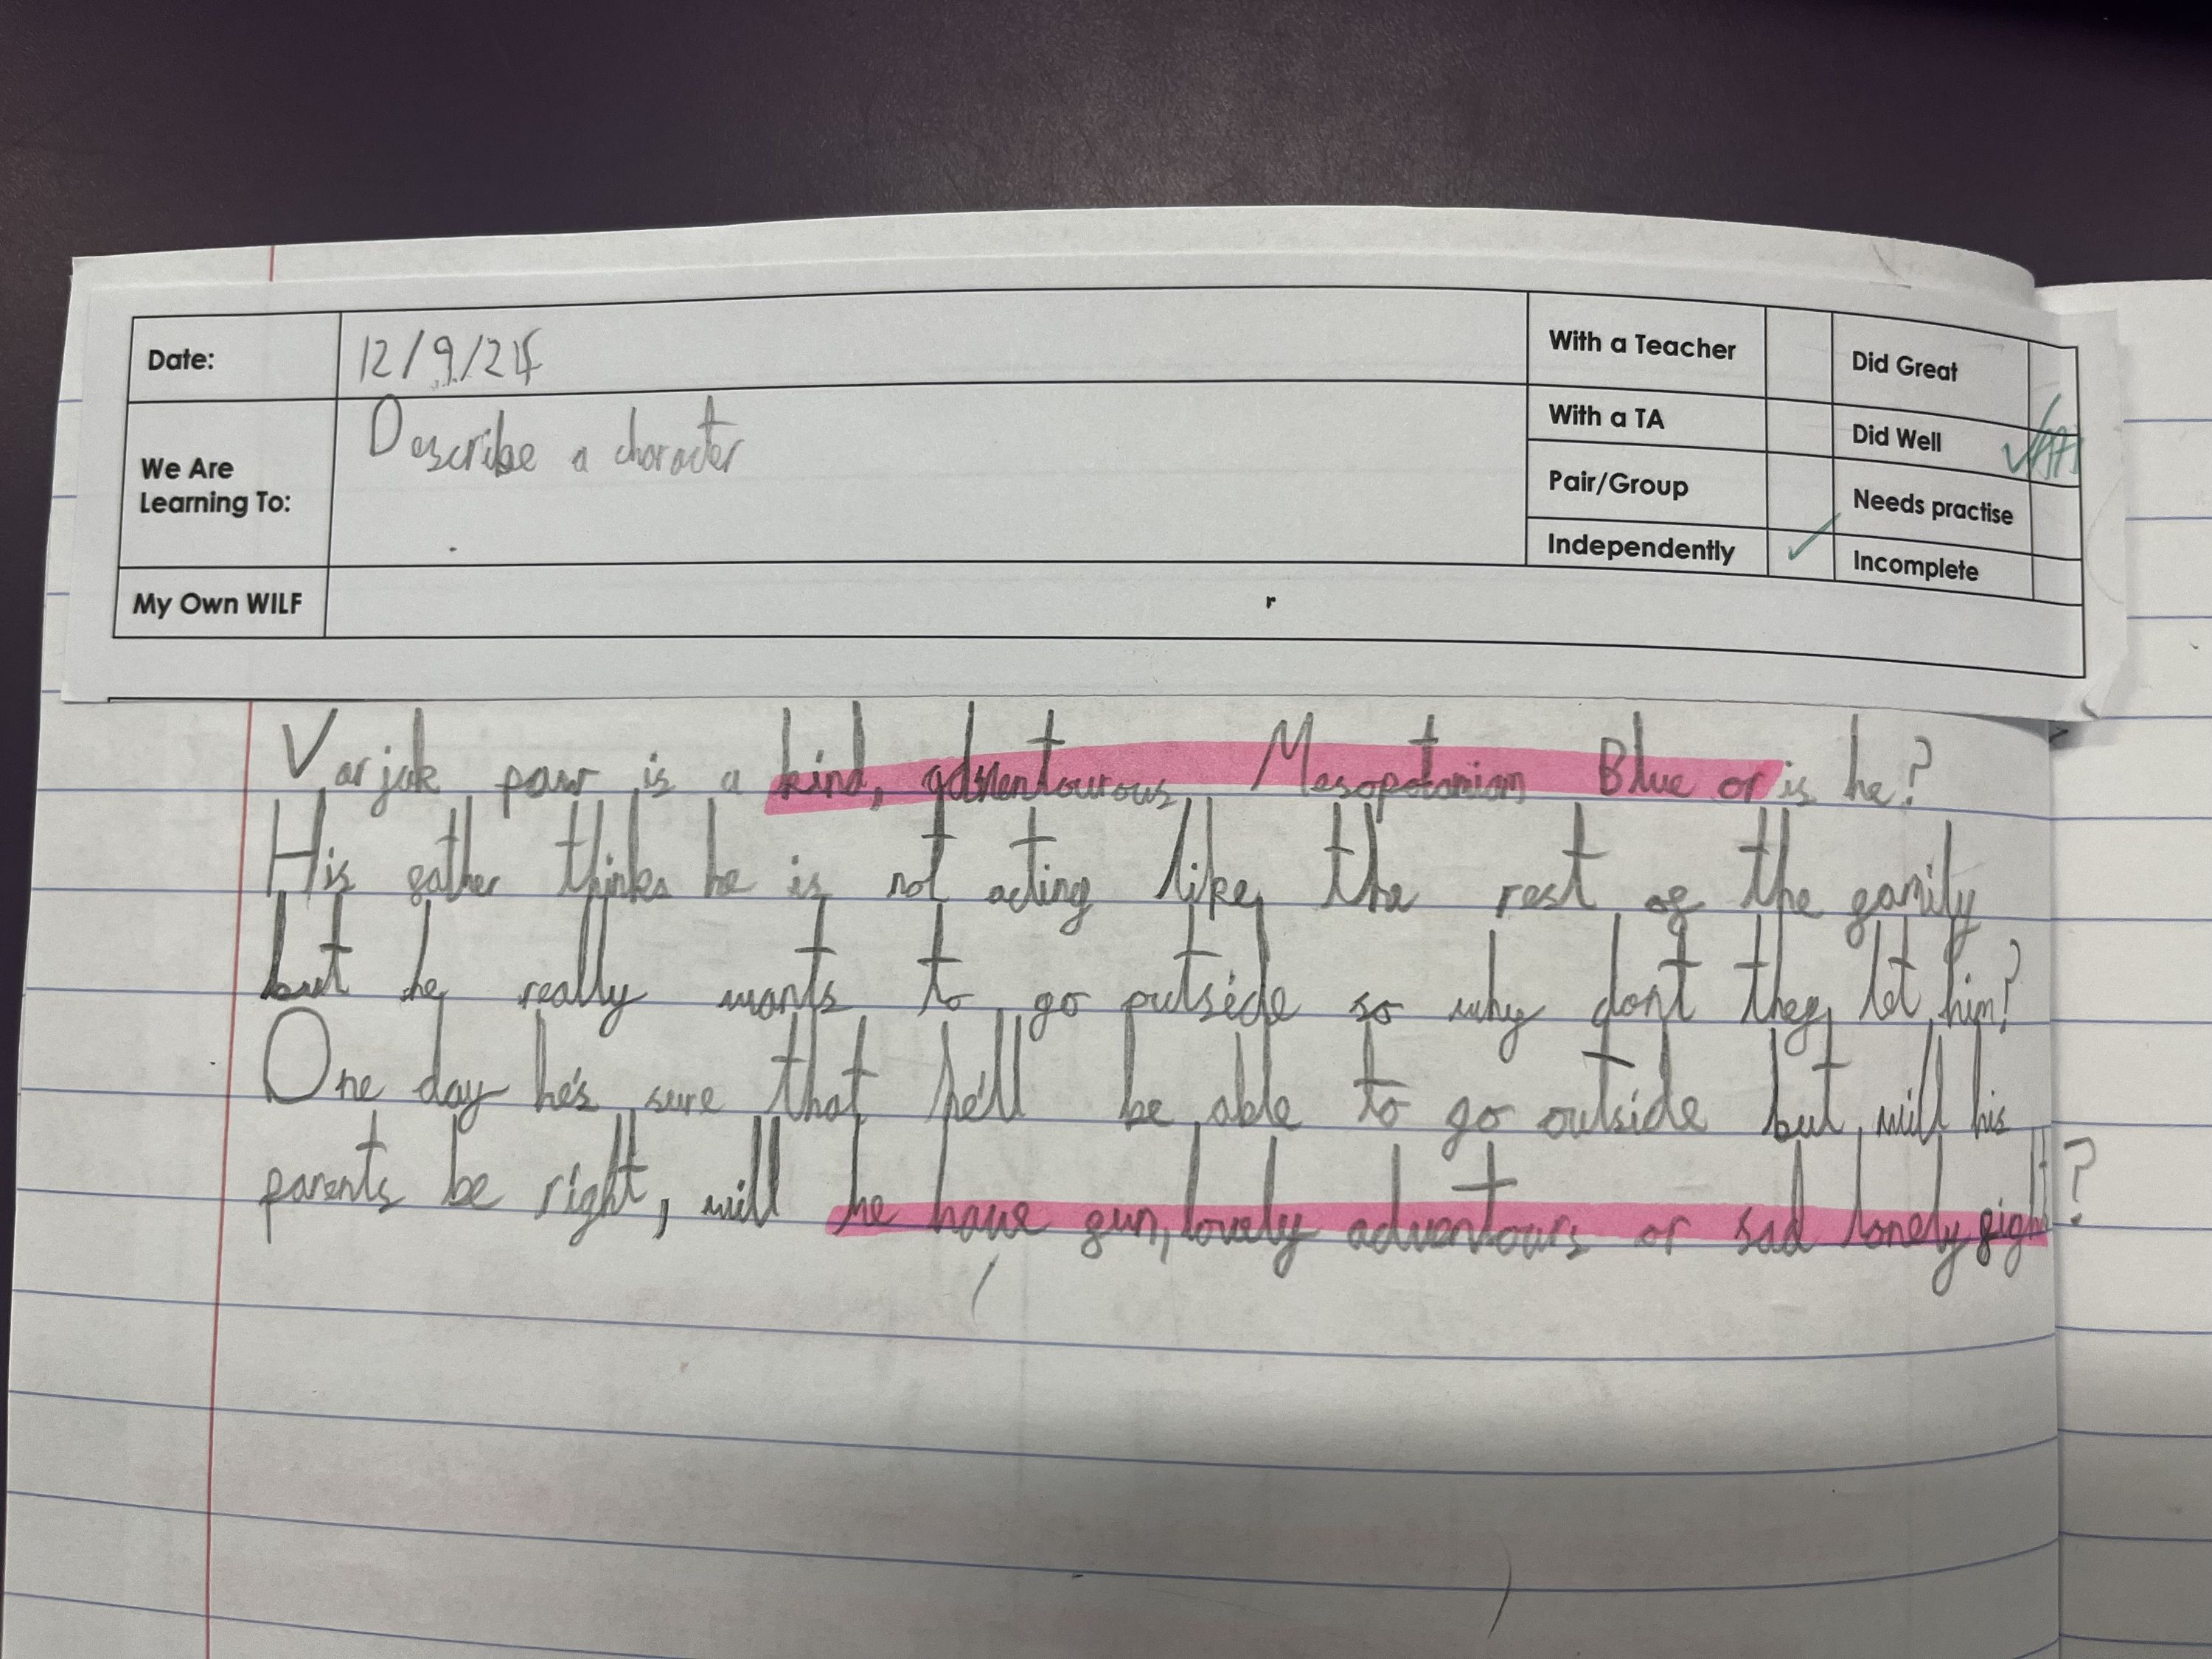 Date:
12/9/24
With a Teacher
Did Great
We Are
Learning To:
Describe a character
With a TA
Did Well
Pair/Group
Needs practise
Independently
Incomplete
My Own WILF
r
Varjak paw is a kind, adventourous Mesopotamian Blue or is he?
His father thinks he is not acting like the rest of the family
but he really wants to go outside so why don't they let him?
One day he's sure that he'll be able to go outside but will his
parents be right, will he have fun, lovely adventours or sad lonely fight?